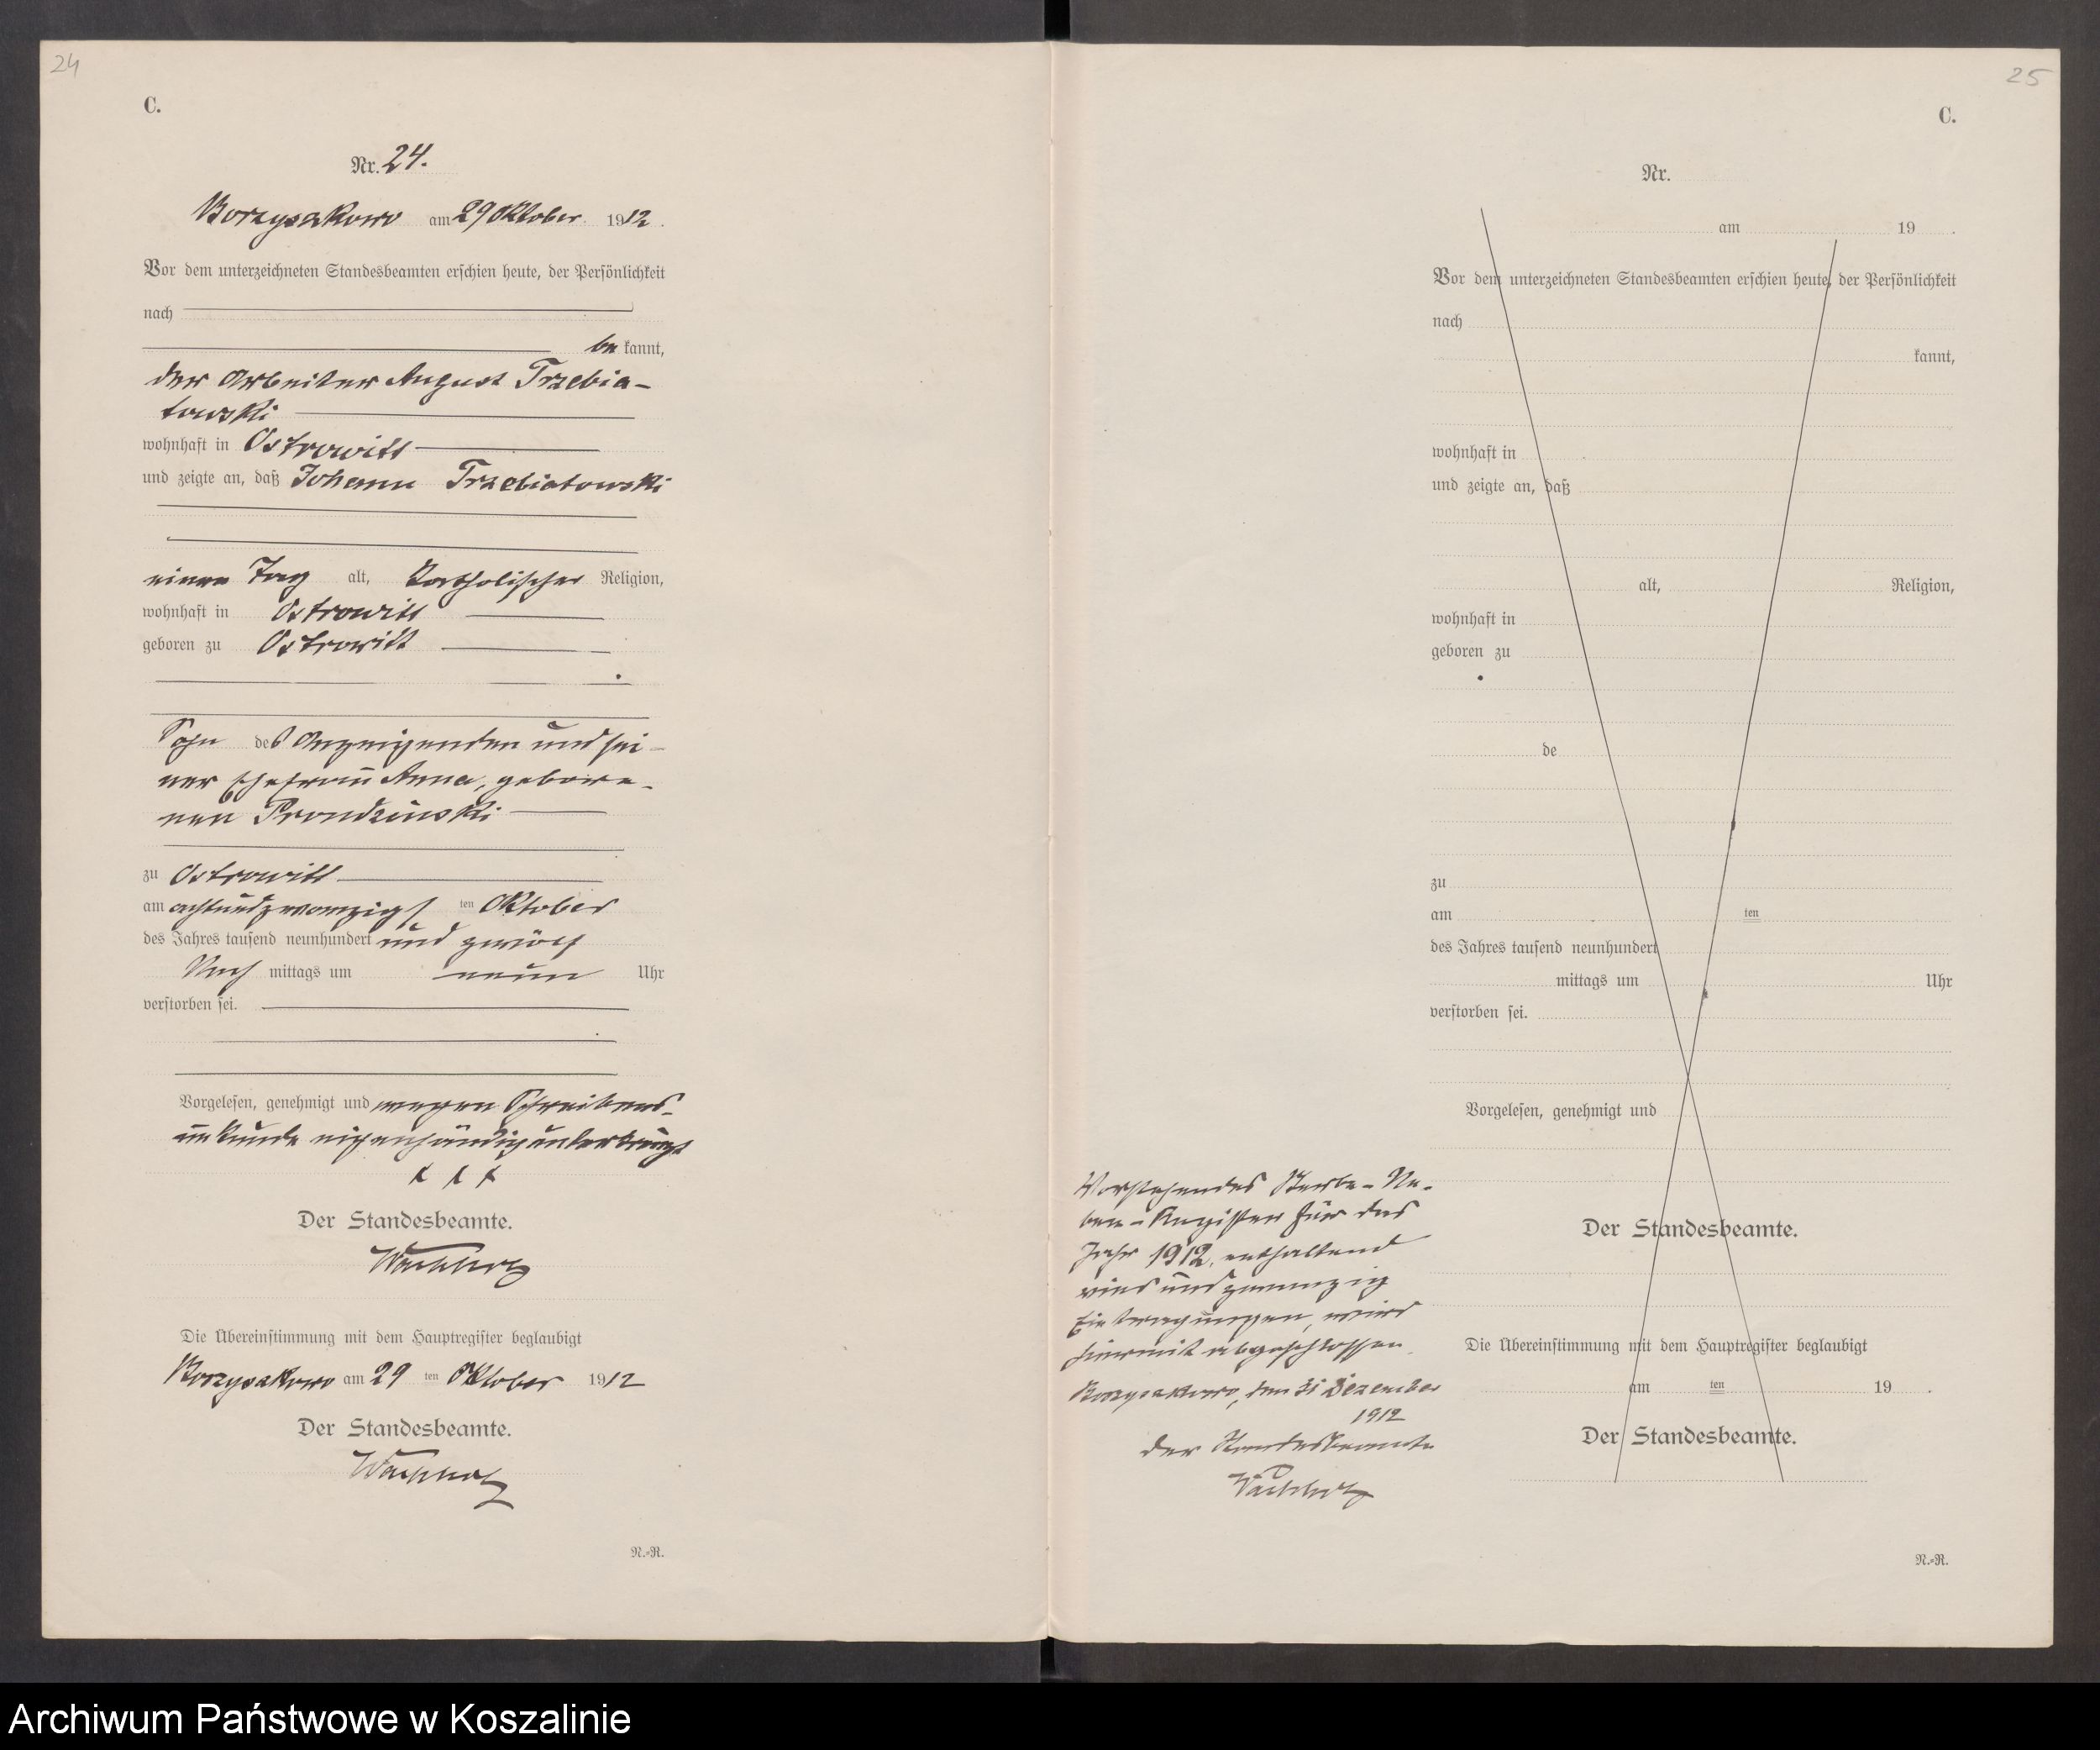 24
C.
Nr. 24.
Borzyszkowo am 29 Oktober 1912.
Vor dem unterzeichneten Standesbeamten erschien heute, der Persönlichkeit
nach
be kannt,
der Arbeiter August Trzebia-
towski
wohnhaft in Ostrowitt
und zeigte an, daß Johann Trzebiatowski
einen Tag alt, katholischer Religion,
wohnhaft in Ostrowitt
geboren zu Ostrowitt
Sohn des Anzeigenden und sei-
ner Ehefrau Anna, gebore-
nen Prondzinski
zu Ostrowitt
am achtundzwanzigsten Oktober
des Jahres tausend neunhundert und zwölf
Nachmittags um neun Uhr
verstorben sei.
Vorgelesen, genehmigt und wegen Schreibens-
unkunde eigenhändig unterkreuzt
x x x
Der Standesbeamte.
Die Übereinstimmung mit dem Hauptregister beglaubigt
Borzyszkowo am 29 ten Oktober 1912
Der Standesbeamte.
N.-R.
25
C.
Nr.
am 19 .
Vor dem unterzeichneten Standesbeamten erschien heute, der Persönlichkeit
nach
kannt,
wohnhaft in
und zeigte an, daß
alt, Religion,
wohnhaft in
geboren zu
de
zu
am ten
des Jahres tausend neunhundert
mittags um Uhr
verstorben sei.
Vorgelesen, genehmigt und
Der Standesbeamte.
Die Übereinstimmung mit dem Hauptregister beglaubigt
am ten 19 .
Der Standesbeamte.
N.-R.
Vorstehendes Sterbe-Ne-
ben-Register für das
Jahr 1912, enthaltend
vierundzwanzig
Eintragungen, wird
hiermit abgeschlossen.
Borzyszkowo, den 31 Dezember
1912
Der Standesbeamte
Archiwum Państwowe w Koszalinie